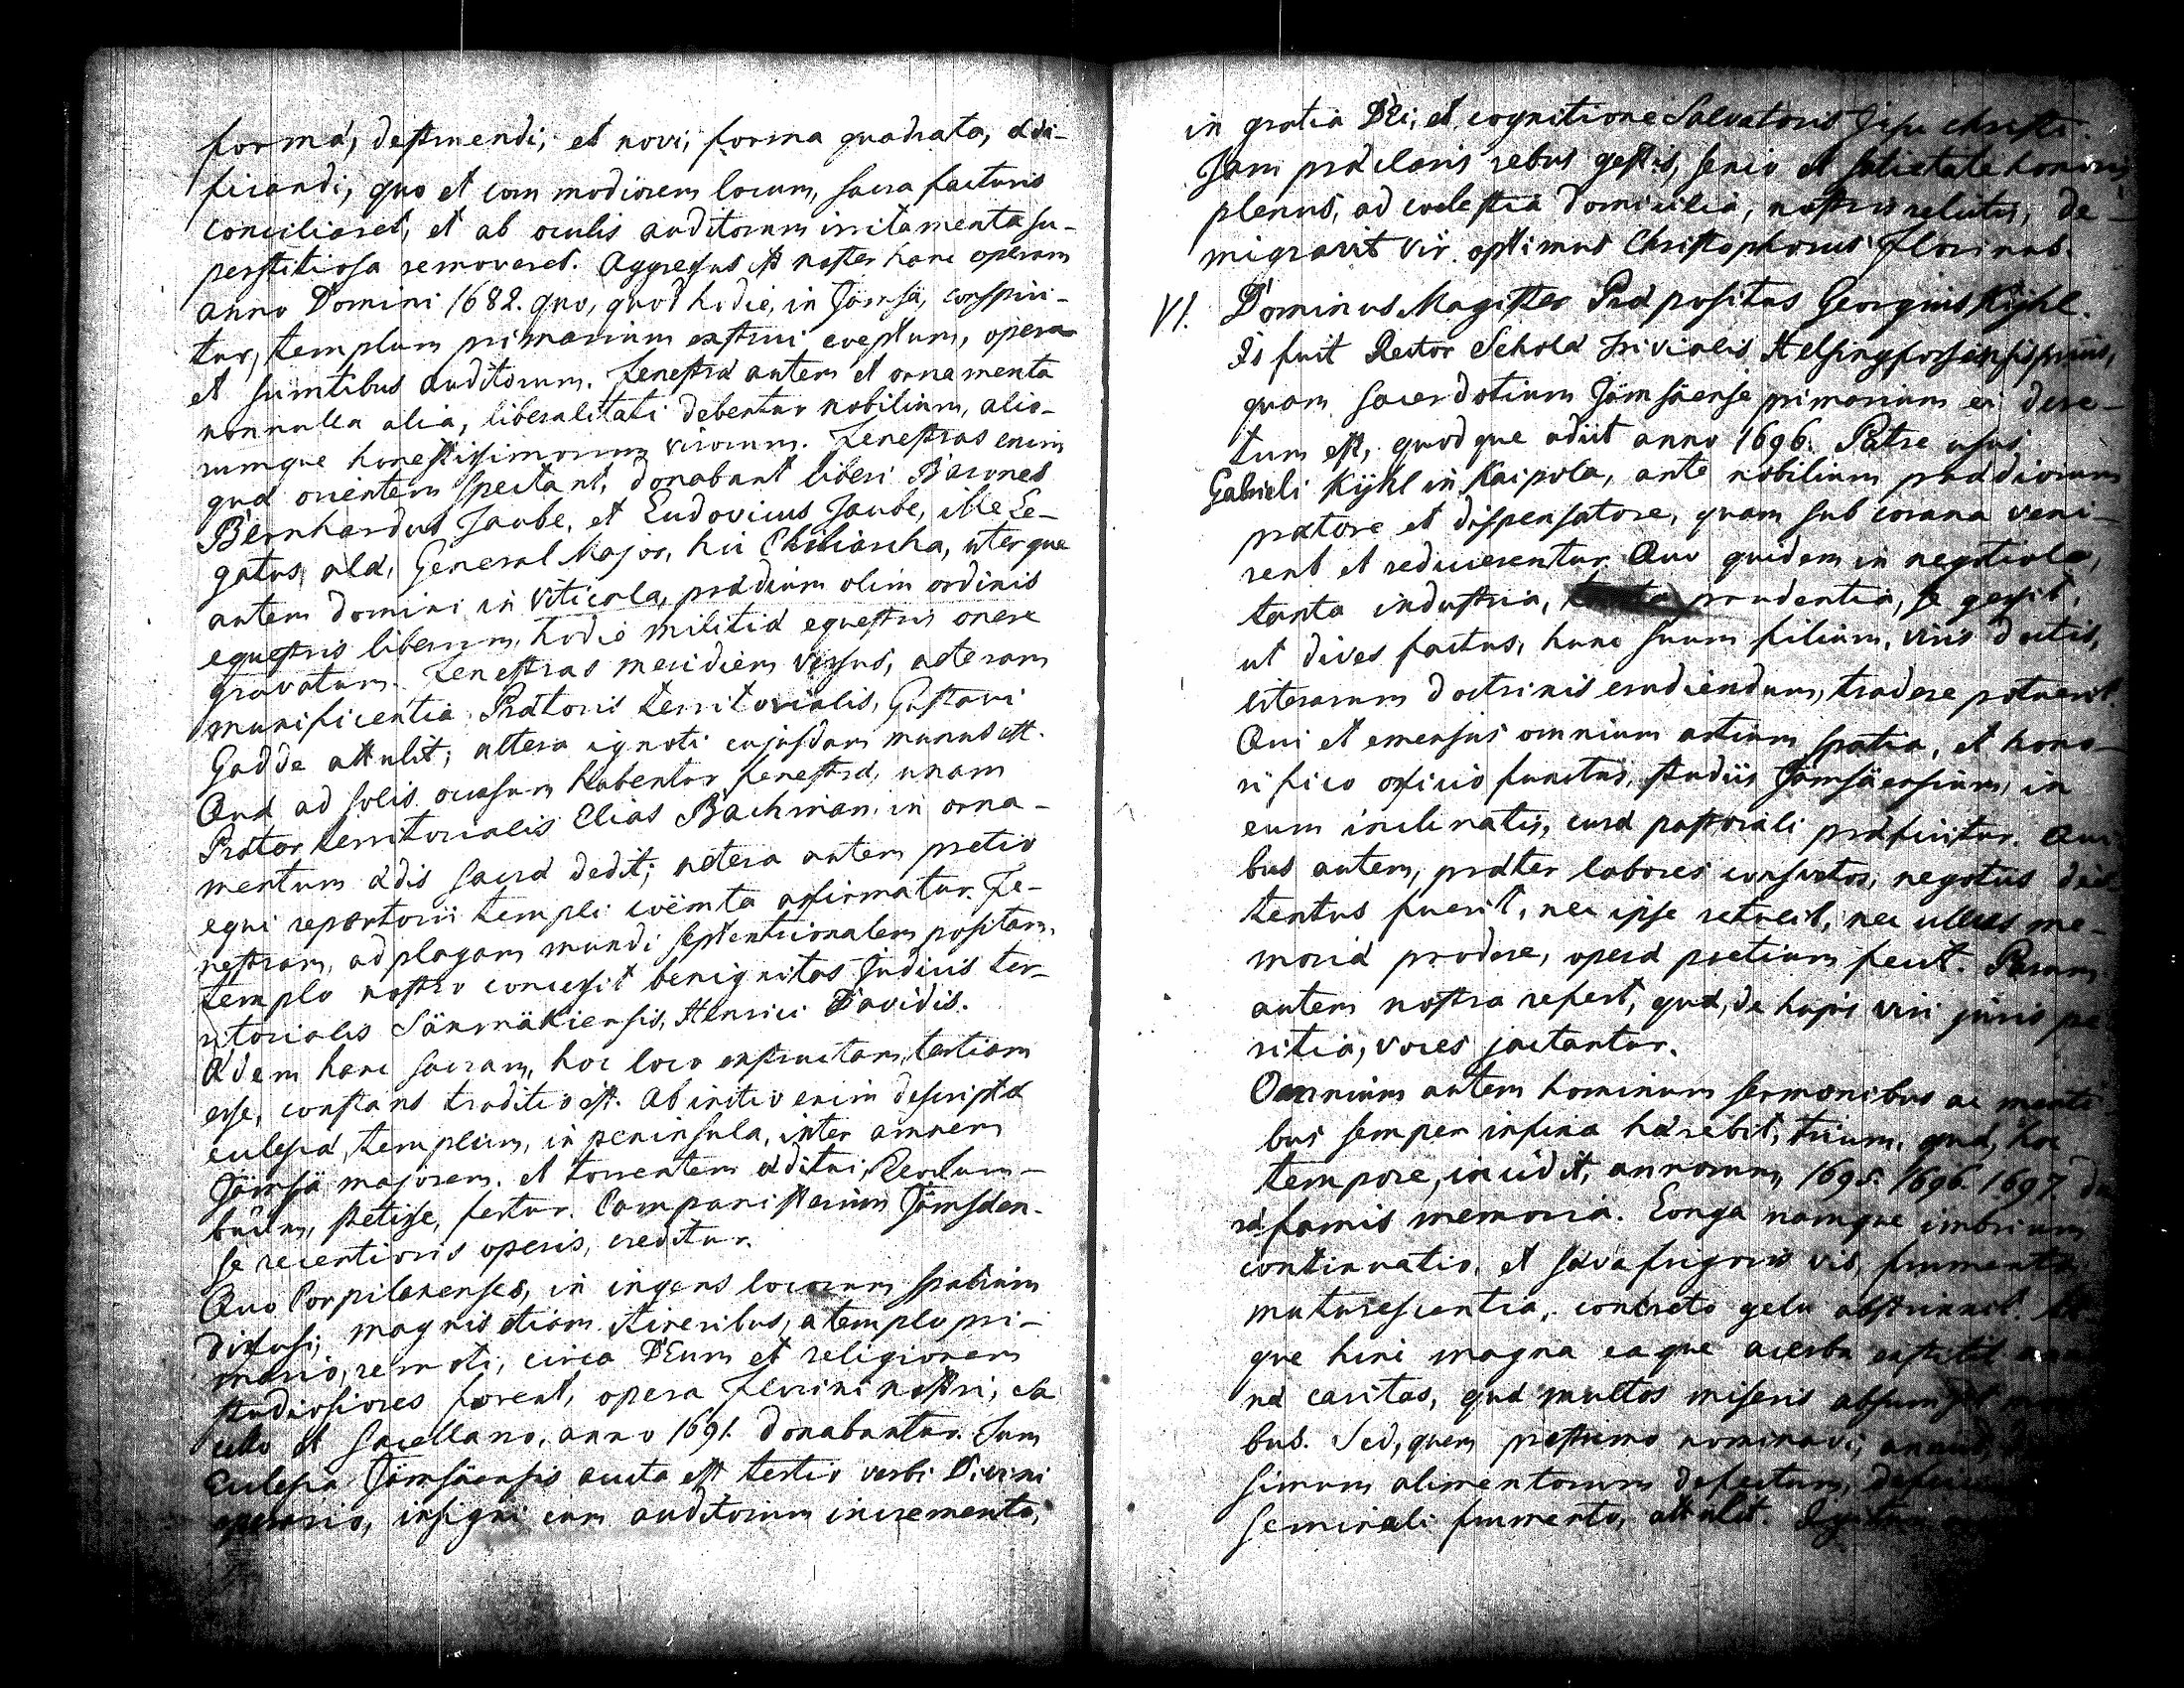 forma, destruendi; et novi, forma quadrata, ædi-
ficandi, quo et commodiorem locum, sacra facturis
conciliaret, et ab oculis auditorum irritamenta su-
perstitiosa removeret. Aggressus est noster hanc operam
anno Domini 1682. quo, quod hodie, in Jämsä, conspici-
tur, templum primarium exstrui cœptum, opera
et sumtibus auditorum. Fenestræ autem et ornamenta
nonnulla alia, liberalitati debentur nobilium, alio-
rumque honestissimorum virorum. Fenestras enim
quæ orientem spectant, donabant liberi Barones
Bernhardus Taube, et Ludovicus Taube, ille Le-
gatus, al. General Major, hic Chiliarcha, uterque
autem domini in Viticala, prædium olim ordinis
equestris liberum, hodie militiæ equestris onere
gravatum. Fenestras meridiem versus, alteram
munificentia Prætoris territorialis, Gustavi
Gadde attulit; altera ignoti cujusdam munus est.
Quæ ad solis occasum habentur fenestræ, unam
Prætor territorialis Elias Bachman in orna-
mentum ædis sacræ dedit; altera autem pretio
equi repertorii templi coëmta affirmatur. Fe-
nestram, ad plagam mundi septentrionalem positam,
templo nostro concessit benignitas Judicis ter-
ritorialis Säxmäkiensis, Henrici Davidis.
Ædem hanc sacram, hoc loco exstructam, tertiam
esse, constans traditio est. Ab initio enim descriptæ
ecclesiæ, templum, in peninsula, inter amnem
Jämsä majorem, et torrentem æditui,
buum, stetisse, fertur. Campanisterium Jämsäen-
se recentioris operis, creditur.
Quo Corpilaxenses, in ingens locorum spatium
diffusi, magnis etiam itineribus, a templo pri-
mario, remoti, circa DEum et religionem
studiosiores forent, opera Florini nostri, sa
cello et Sacellano, anno 1691. donabantur. Tum
Ecclesia Jämsäensis aucta est tertio verbi Divini
operario, insigni cum auditorum incremento,
in gratia DEi, et cognitione Salvatoris Jesu Christi.
Tam præclaris rebus gestis, senio et satietate honoris
plenus, ad coelestia domicilia, nostris relictis, de-
migravit vir optimus Christophorus Florinus.
VI. Dominus Magister Præpositus Georgius Kijhl.
Is fuit Rector Scholæ Trivialis Helsingforsiensis prius,
quam sacerdotium Jämsäense primarium ei decre-
tum est, quodque adiit anno 1696. Patre usus
Gabrieli Kijhl in Kaipola, ante nobilium prædiorum
prætore et dispensatore, quam sub corona veni-
rent et reducerentur. Quo quidem in negotiolo,
tanta industria, prudentia, se gessit,
ut dives factus, hunc suum filium, viris doctis,
literarum doctrinis erudiendum, tradere potuerit.
Qui et emensus omnium artium spatia, et hono-
rifico officio functus, studiis Jämsäensium, in
eum inclinatis, curæ pastorali præficitur. Qui
bus autem, præter labores consuetos, negotiis
tentus fuerit, nec ipse retulit, nec ullus me-
moriæ prodere, operæ pretium fecit. Parum
autem nostra refert, quæ, de hujus viri juris pe
ritia, voces jactantur.
Omnium autem hominum sermonibus ac menti
bus semper infixa hærebit, trium, quæ, hoc
tempore, incidit, annorum, 1695. 1696. 1697.
ræ famis memoria. Longa namque imbrium
continuatio, et sæva frigoris vis, frumenta
maturescentia, concreto gelu abstrinxit.
que hinc magna eaque acerba exstitit
næ caritas, quæ multos miseris absumsit
bus. Sed, quem postremo nominavi, annus,
simum alimentorum defectum,
seminali frumento, attulit.